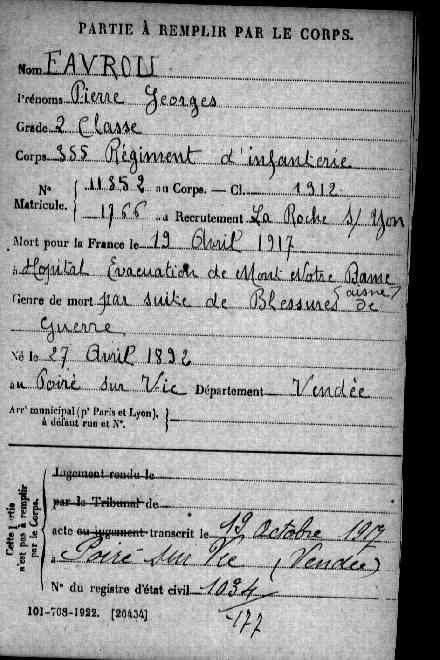 PARTIE À REMPLIR PAR LE CORPS.
Nom FAVROU
Prénoms Pierre Georges
Grade 2 Classe
Corps 355 Régiment d'infanterie
N° Matricule. { 11852 au Corps. — Cl. 1912
1766 au Recrutement La Roche s/ Yon
Mort pour la France le 19 Avril 1917
à Hopital Evacuation de Mont Notre Dame
(aisne)
Genre de mort par suite de Blessures de
Guerre
Né le 27 Avril 1892
au Poiré sur Vie Département Vendée
Arr' municipal (p' Paris et Lyon),
à défaut rue et N°.
Cette partie n'est pas à remplir par le Corps.
Jugement rendu le
par le Tribunal de
acte ou jugement transcrit le 19 Octobre 1917
à Poiré sur Vie (Vendée)
N° du registre d'état civil 1034/
177
101-708-1922. [26434]